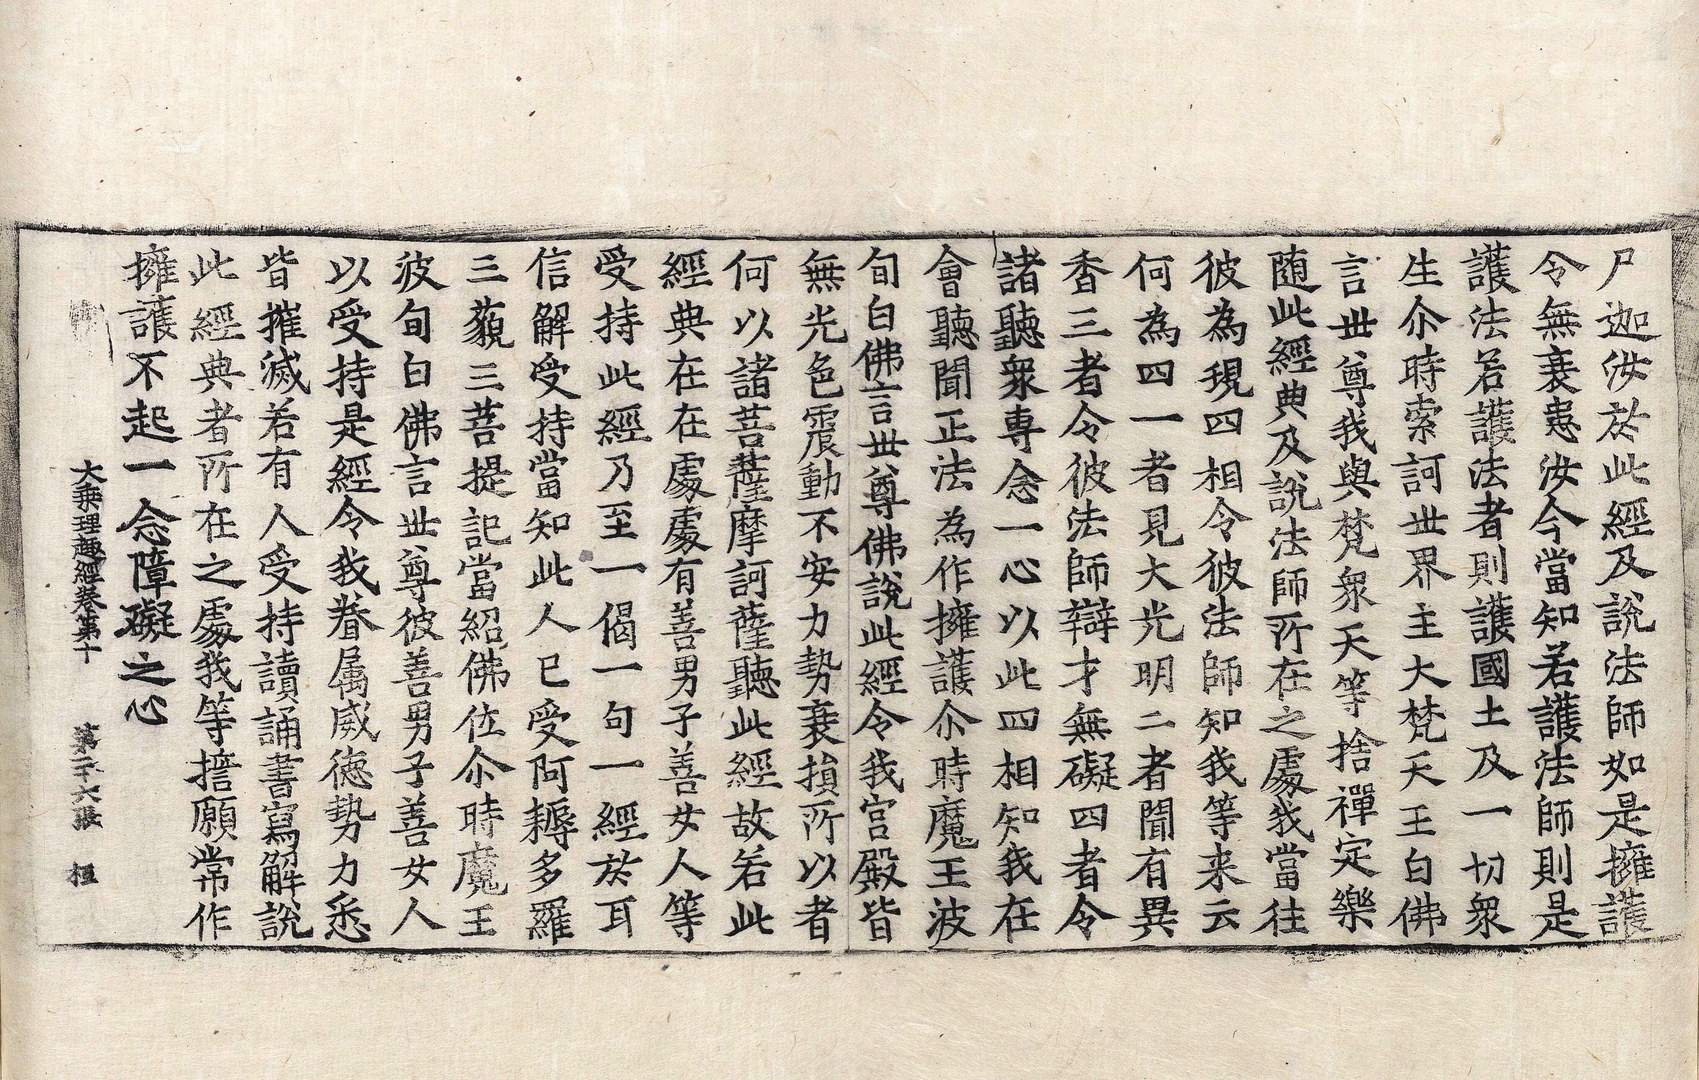 尸迦汝於此經及說法師如是擁護
令無衰患汝今當知若護法師則是
護法若護法者則護國土及一切衆
生尒時索訶丗界主大梵天王白佛
言丗尊我與梵衆天等捨禪定樂
随此經典及說法師所在之處我當往
彼為現四相令彼法師知我等来云
何為四一者見大光明二者聞有異
香三者令彼法師辯才無礙四者令
諸聽衆專念一心以此四相知我在
會聽聞正法為作擁護尒時魔王波
旬白佛言丗尊佛說此經令我宮殿皆
無光色震動不安力勢衰損所以者
何以諸菩薩摩訶薩聽此經故若此
經典在在處處有善男子善女人等
受持此經乃至一偈一句一經於耳
信解受持當知此人已受阿耨多羅
三藐三菩提記當紹佛位尒時魔王
波旬白佛言丗尊彼善男子善女人
以受持是經令我眷属威徳勢力悉
皆摧滅若有人受持讀誦書寫解說
此經典者所在之處我等擔願常作
擁護不起一念障礙之心
大乘理趣經卷第十 第二十六張 桓